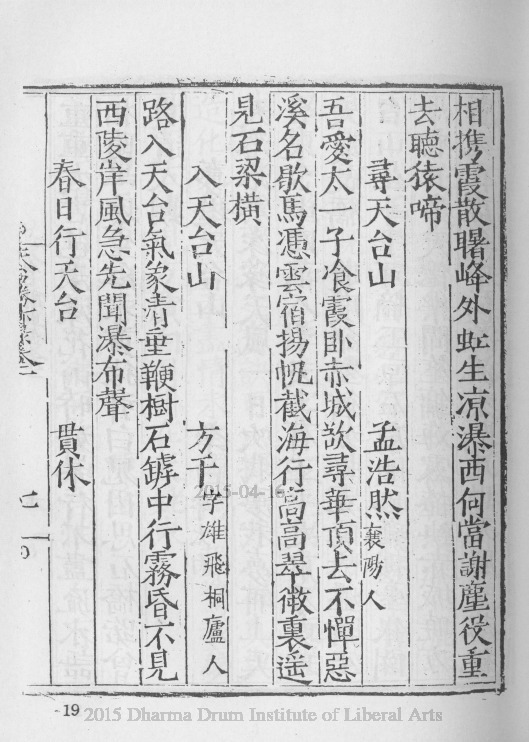 相携霞散曙峰外虹生凉瀑西何當謝塵役重
去聽猿啼
尋天台山 孟浩然 襄陽人
吾愛太一子飡霞卧赤城欲尋華頂去不憚惡
溪名歇馬憑雲宿揚帆截海行高高翠微裏遥
見石梁橫
入天台山 方干 字雄飛桐廬人
路入天台氣象清垂鞭樹石罅中行霧昏不見
西陵岸風急先聞瀑布聲
春日行天台 貫休
七
2015-04-16
-19
2015 Dharma Drum Institute of Liberal Arts